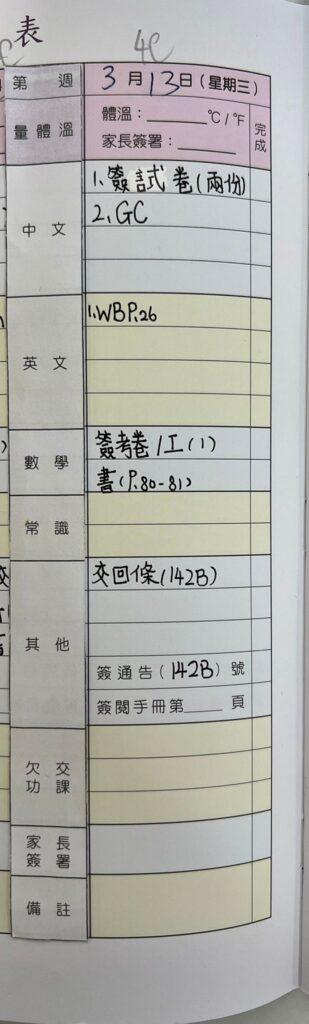 表
4C
第 週 3月13日(星期三)
量體溫 體溫：______℃/℉ 完成
家長簽署：______
中文 1. 簽試卷(兩份)
2. GC
英文 1. WB P.26
數學 簽考卷/工(1)
書(P.80-81)
常識
其他 交回條(142B)
簽通告(142B)號
簽閱手冊第____頁
欠交功課
家長簽署
備註